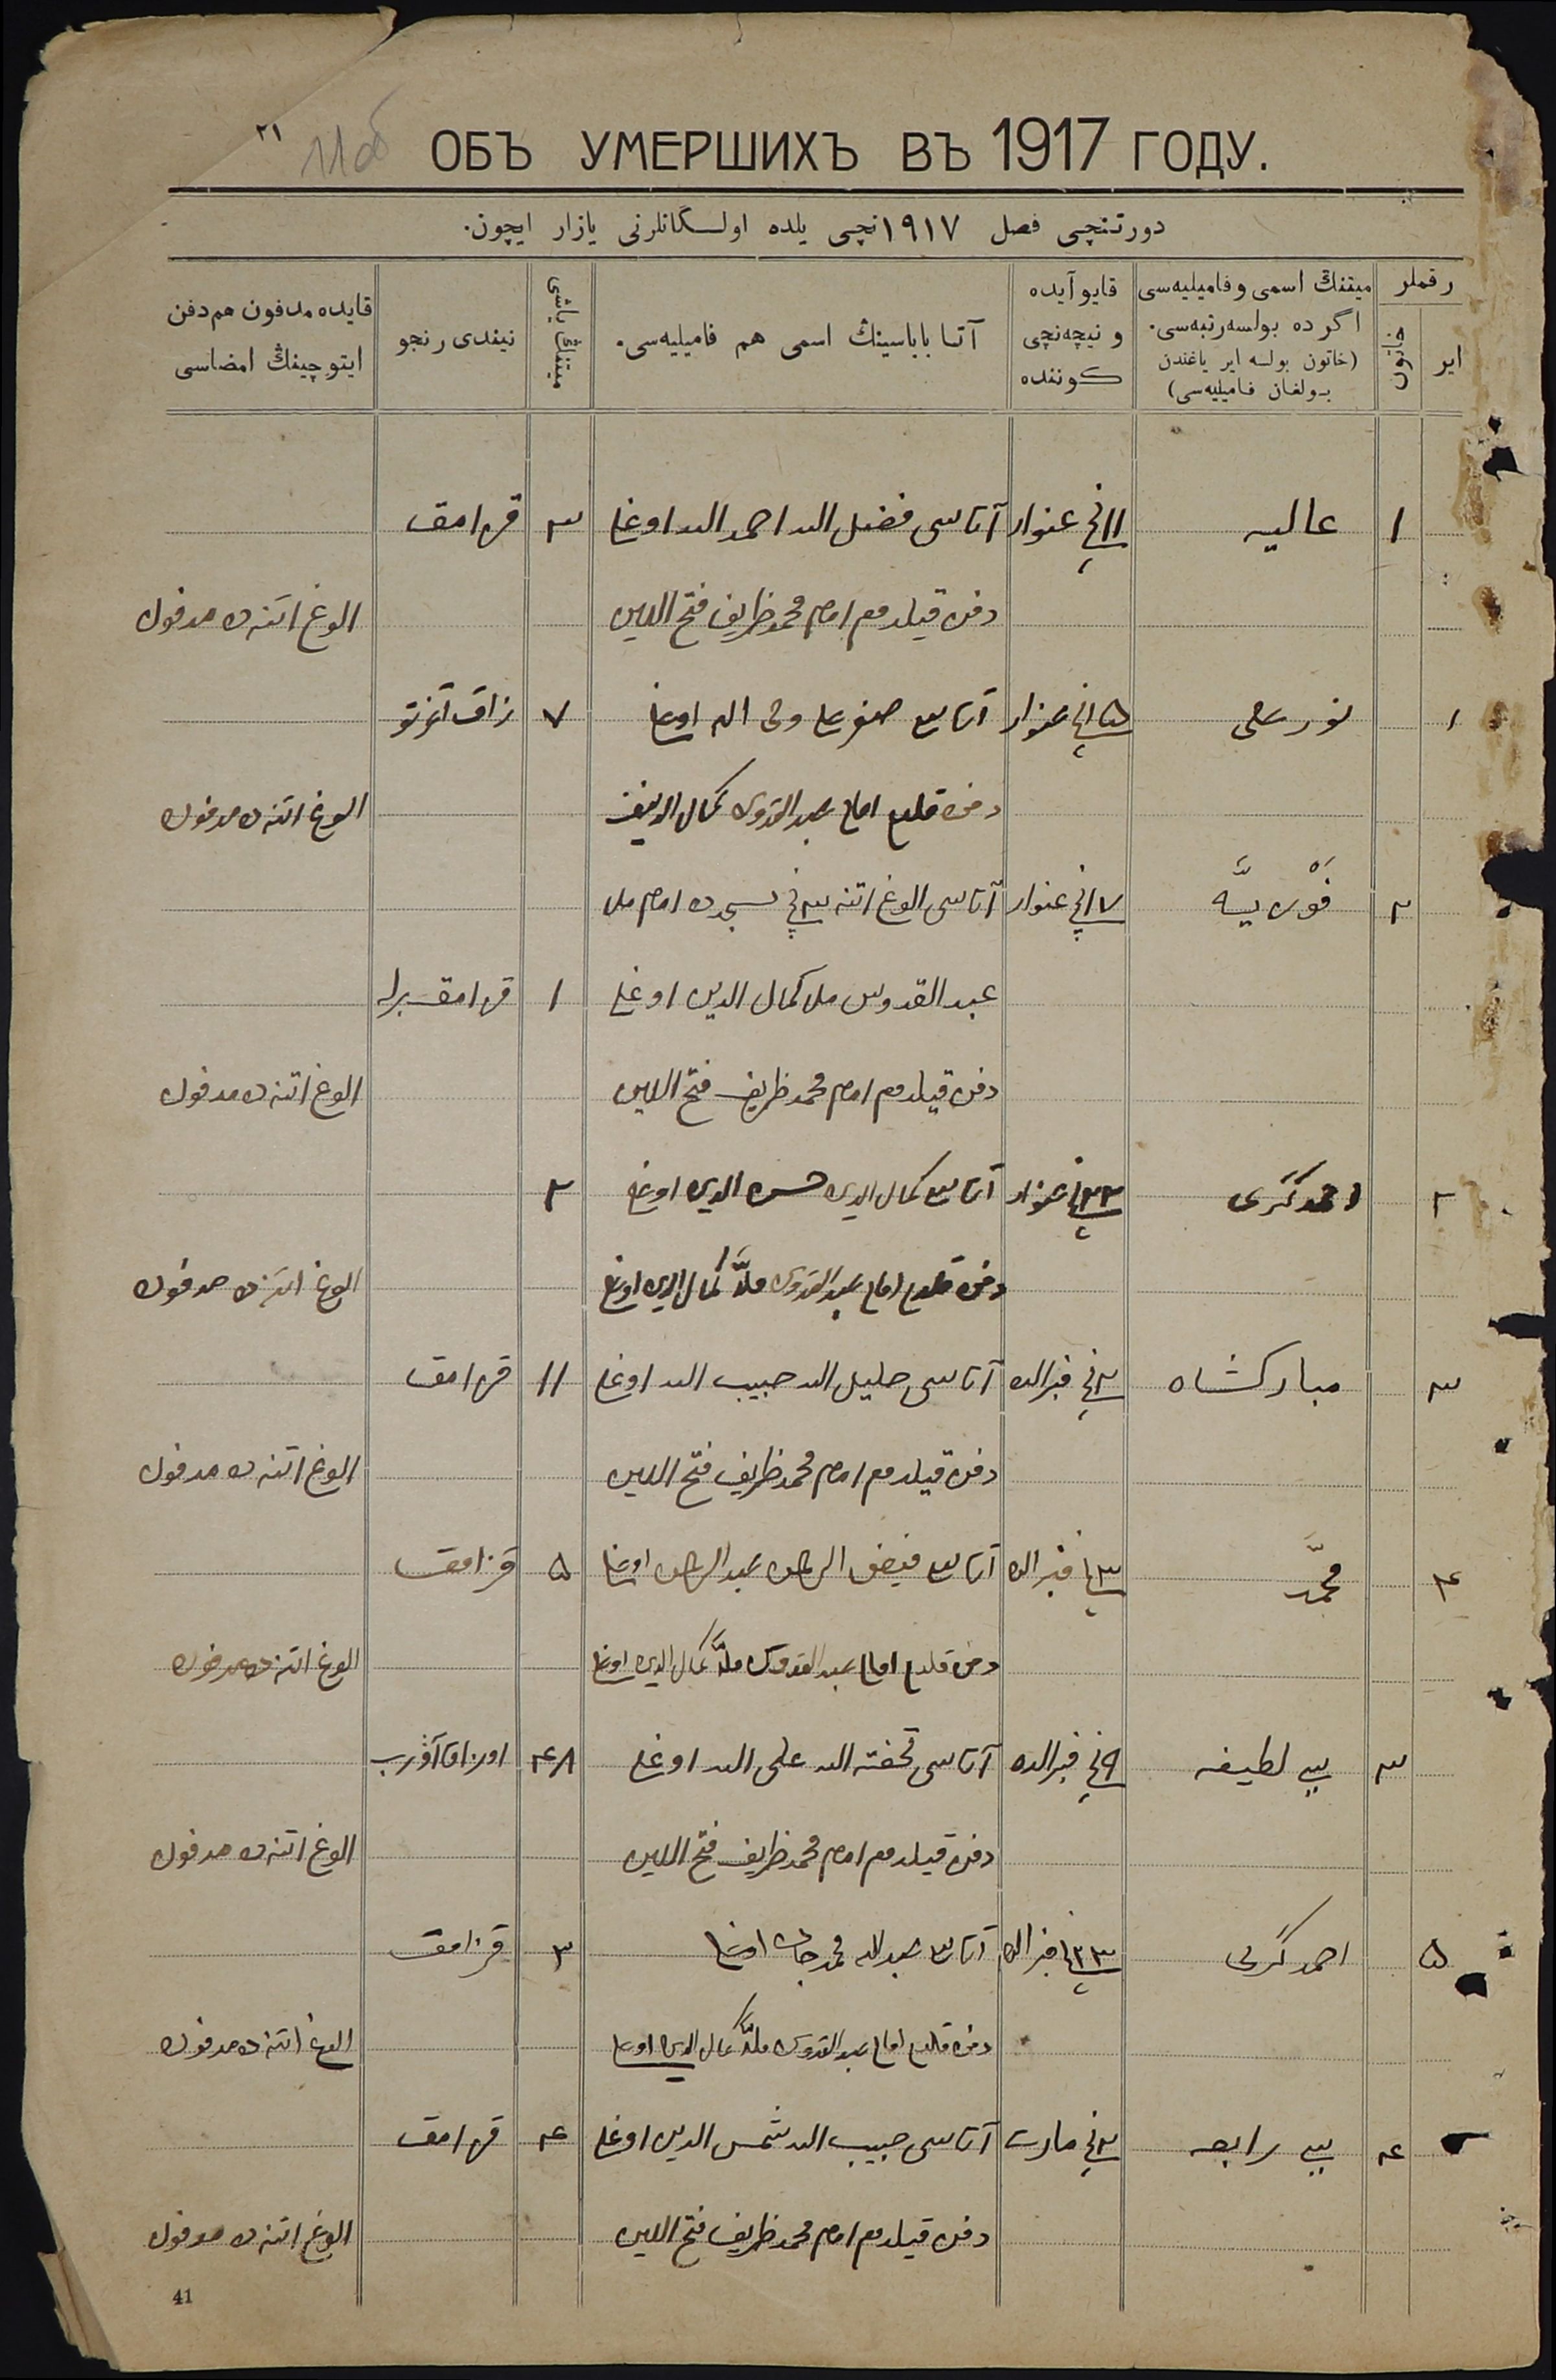 ٢١
11об
ОБЪ УМЕРШИХЪ ВЪ 1917 ГОДУ.
دورتنچی فصل ١٩١٧نچی یلده اولـسگانلرنی یازار ایچون.
رقملر
ایر
خاتون
میتنڭ اسمی و فامیلیه‌سی اگر ده بولسه رتبه‌سی. (خاتون بولسه ایر یاغندن بـولغان فامیلیه‌سی)
قایو آیده و نیچه‌نچی کوننده
آتـا باباسینڭ اسمی هم فامیلیه‌سی.
میتنڭ یاشی
نیندی رنجو
قایده مدفون هم دفن ایتوچینڭ امضاسی
١ عالیه ١١نچی عنوار آتاسی فضل الله احمد الله اوغلی ٣ قزامق
دفن قیلدم امام محمد ظریف فتح الدین الوغ اتنه ده مدفون
١ نور علی ١٥نچی عنوار آتاسی صفر علی ولی الله اوغلی ٧
دفن قلدم امام عبد القدوس کمال الدینف الوغ اتنه ده مدفون
٢ فَوْزیَّه ١٧نچی عنوار آتاسی الوغ اتنه ٣نچی مسجده امام ملا
عبد القدوس ملا کمال الدین اوغلی ١ قزامق برله
دفن قیلدم امام محمد ظریف فتح الدین الوغ اتنه ده مدفون
٢ احمد کری ٢٣نچی عنوار آتاسی کمال الدین حسن الدین اوغلی ٢
دفن قلدم امام عبد القدوس ملاّ کمال الدین اوغلی الوغ اتنه ده مدفون
٣ مبارکشاه ٢نچی فبرالده آتاسی خلیل الله حبیب الله اوغلی ١١ قزامق
دفن قیلدم امام محمد ظریف فتح الدین الوغ اتنه ده مدفون
٤ محمّد ٣نچی فبرالده آتاسی فیض الرحمن عبد الرحمن اوغلی ٥ قزامق
دفن قلدم امام عبد القدوس ملاّ کمال الدین اوغلی الوغ اتنه ده مدفون
٣ بی بی لطیفه ٩نچی فبرالده آتاسی تحفة الله علی الله اوغلی ٤٨ اوزاق آورب
دفن قیلدم امام محمد ظریف فتح الدین الوغ اتنه ده مدفون
٥ احمد کری ٢٣نچی فبرالده آتاسی عبد الله محمد جان اوغلی ٣ قزامق
دفن قلدم امام عبد القدوس ملاّ کمال الدین اوغلی الوغ اتنه ده مدفون
٤ بی بی رابعه ٢نچی مارت آتاسی حبیب الله شمس الدین اوغلی ٤ قزامق
دفن قیلدم امام محمد ظریف فتح الدین الوغ اتنه ده مدفون
41